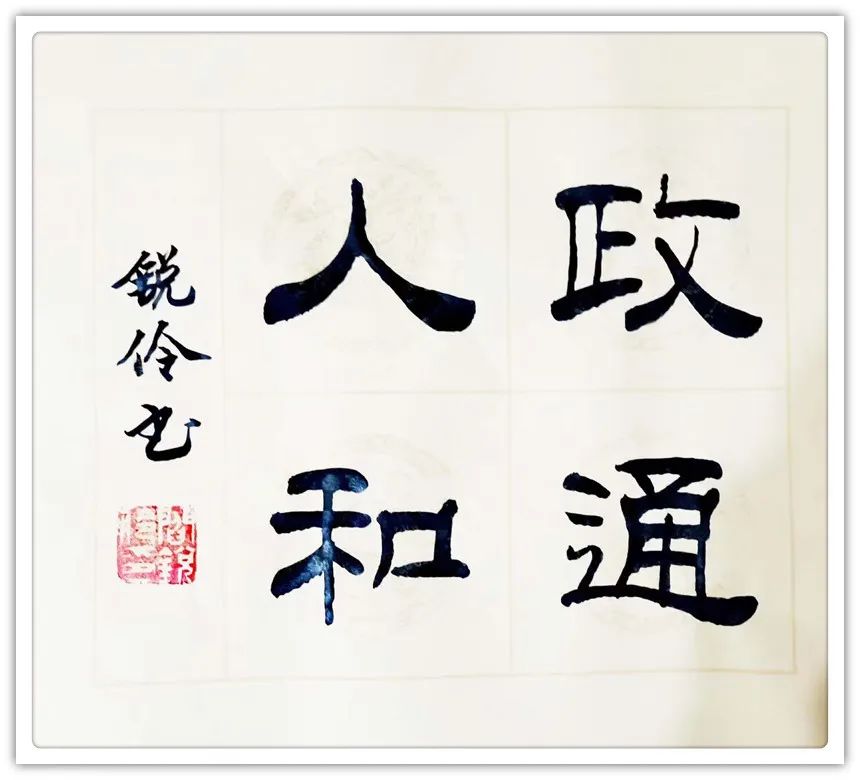 政通
人和
锐伶书